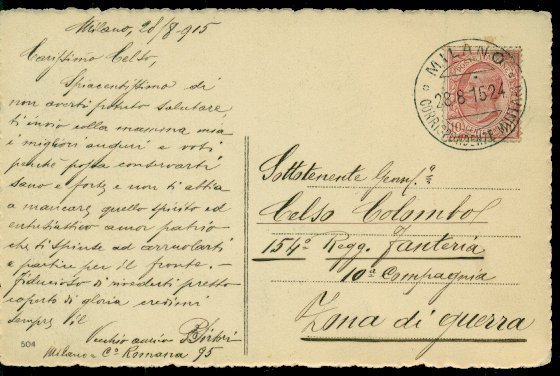 Milano, 28/8-915
Carissimo Celso,
Spiacentissimo di
non averti potuto salutare
ti invio colla massima mia
i migliori auguri e voti
perchè possa conservarti
sano e forte, e non ti abbia
a mancare quello spirito ed
entusiastico amor patrio
che ti spinse ad arruolarti
e partire per il fronte. -
Fiducioso di rivederti presto
coperto di gloria credimi
sempre il
Vecchio amico
Milano - Cso Romana 95
504
MILANO
28.8-15 24
CORRISPONDENZE
Sottotenente
Celso Colombo
154° Regg. Fanteria
10a Compagnia
Zona di guerra